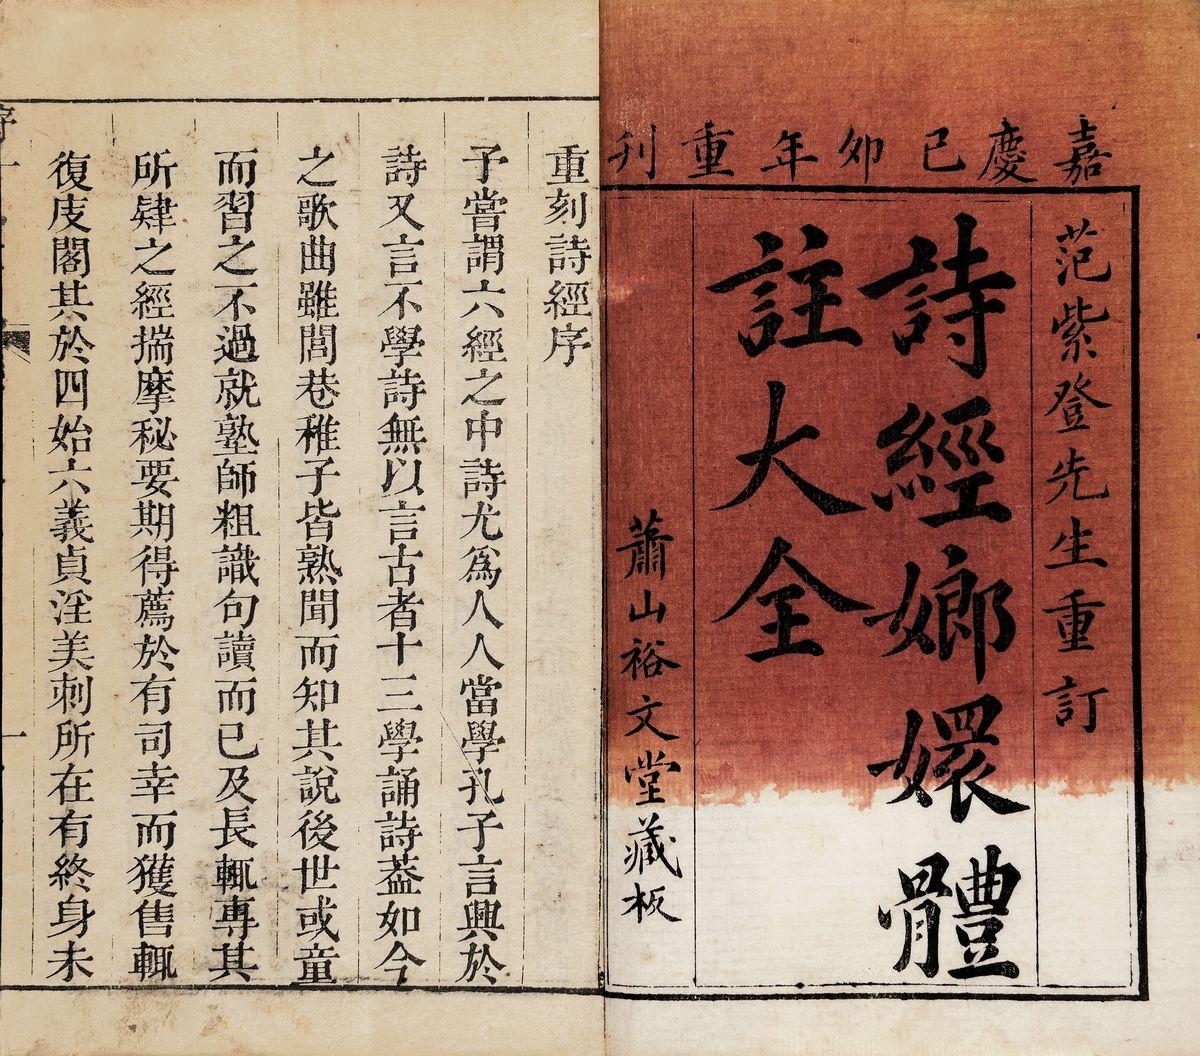 嘉慶己卯年重刊
范紫登先生重訂
詩經嫏嬛體
註大全
蕭山裕文堂藏板
重刻詩經序
予嘗謂六經之中詩尤為人人當學孔子言興於
詩又言不學詩無以言古者十三學誦詩葢如今
之歌曲雖閭巷稚子皆熟聞而知其說後世或童
而習之不過就塾師粗識句讀而已及長輒專其
所肄之經揣摩秘要期得薦於有司幸而獲售輒
復庋閣其於四始六義貞淫美刺所在有終身未
序
一